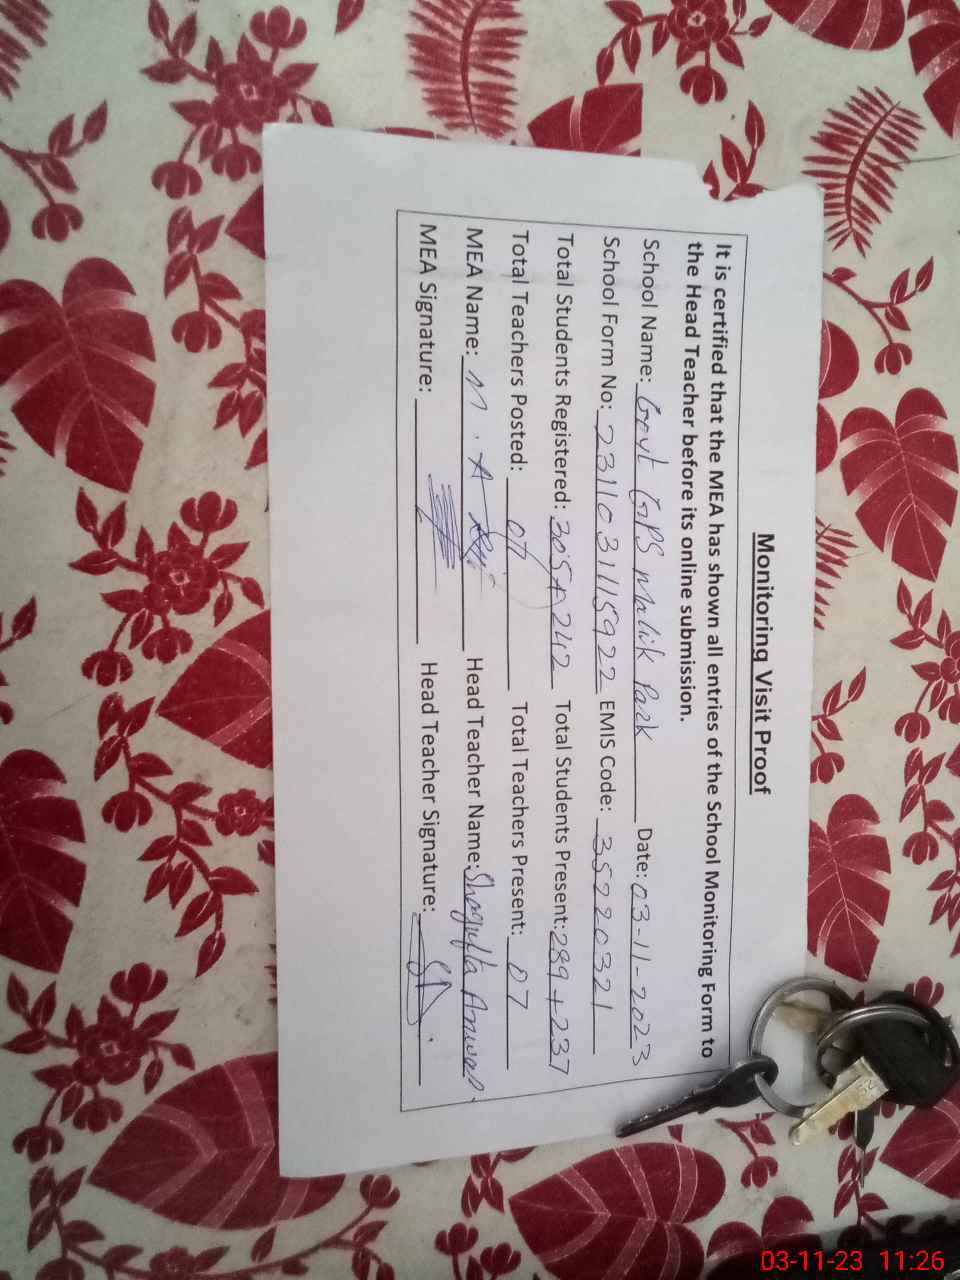 Monitoring Visit Proof
It is certified that the MEA has shown all entries of the School Monitoring Form to
the Head Teacher before its online submission.
School Name: Govt GPS Malik Park Date: 03-11-2023
School Form No: 231103115922 EMIS Code: 35220321
Total Students Registered: 305+242 Total Students Present: 289+237
Total Teachers Posted: 07 Total Teachers Present: 07
MEA Name: M. A Head Teacher Name: Shagufta Anwar
MEA Signature: Head Teacher Signature:
03-11-23 11:26